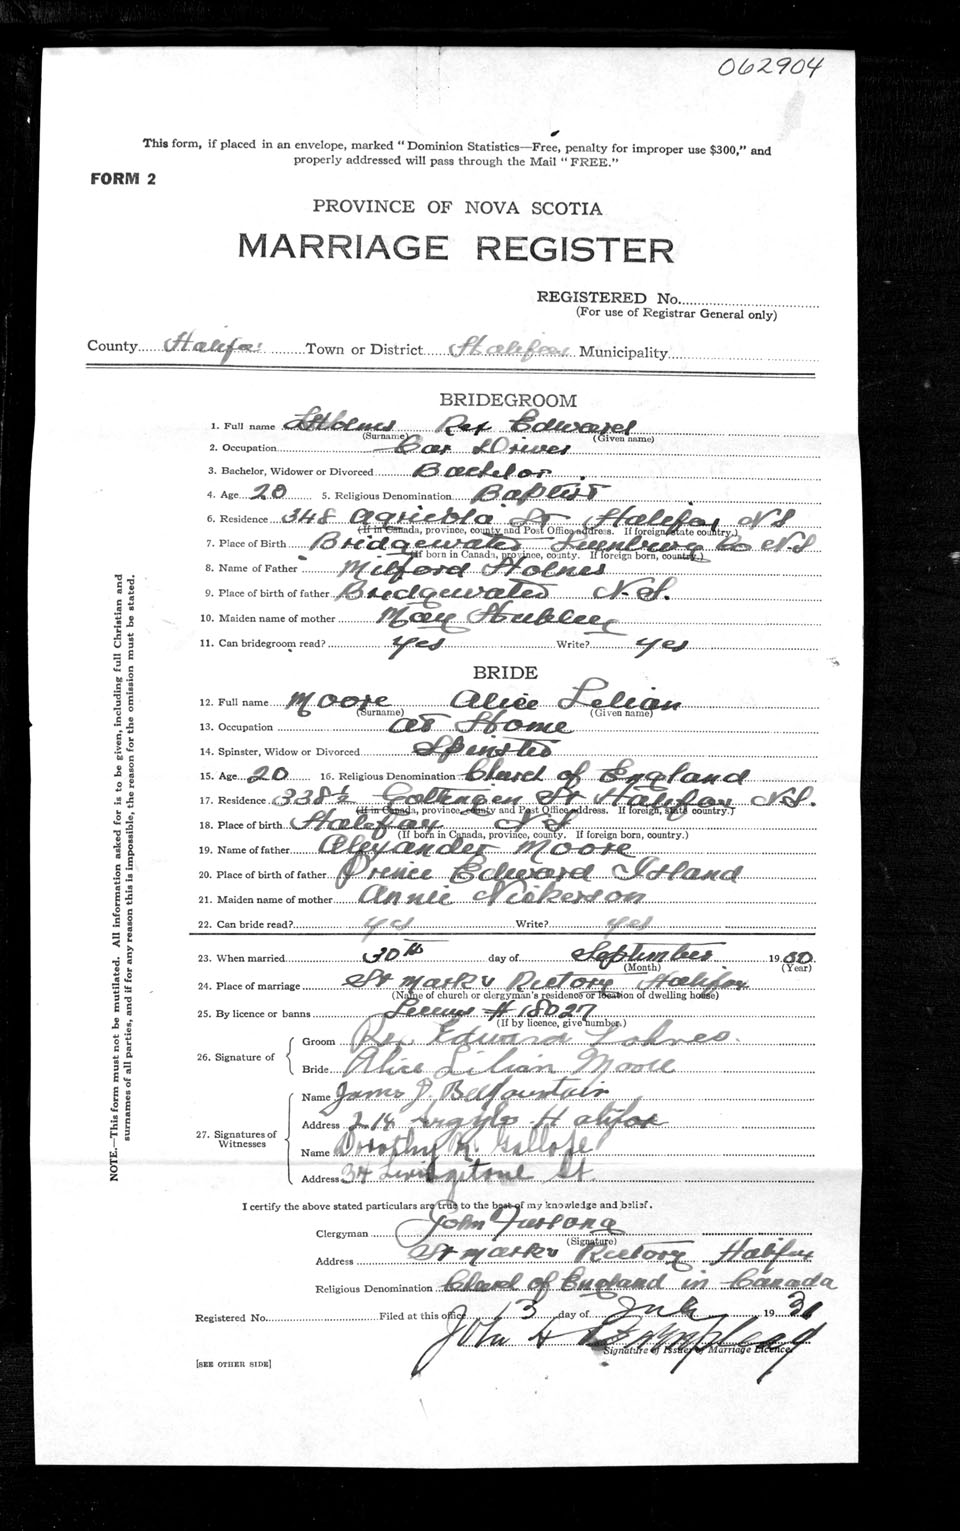 062904
This form, if placed in an envelope, marked "Dominion Statistics—Free, penalty for improper use $300," and
properly addressed will pass through the Mail "FREE."
FORM 2
PROVINCE OF NOVA SCOTIA
MARRIAGE REGISTER
REGISTERED No.
(For use of Registrar General only)
County Halifax Town or District Halifax Municipality
BRIDEGROOM
1. Full name Rex Edward
(Surname) (Given name)
2. Occupation Car Driver
3. Bachelor, Widower or Divorced Bachelor
4. Age 20 5. Religious Denomination Baptist
6. Residence 348 Agricola St Halifax N S
(If in Canada, province, county and Post Office address. If foreign, state country.)
7. Place of Birth Bridgewater Lunenburg Co N S
(If born in Canada, province, county. If foreign born, country.)
8. Name of Father Milford
9. Place of birth of father Bridgewater N. S.
10. Maiden name of mother May
11. Can bridegroom read? Yes Write? Yes
BRIDE
12. Full name Moore Alice Lilian
(Surname) (Given name)
13. Occupation At Home
14. Spinster, Widow or Divorced Spinster
15. Age 20 16. Religious Denomination Church of England
17. Residence 338½ Gottingen St Halifax N S.
(If in Canada, province, county and Post Office address. If foreign, state country.)
18. Place of birth Halifax N S
(If born in Canada, province, county. If foreign born, country.)
19. Name of father Alexander Moore
20. Place of birth of father Prince Edward Island
21. Maiden name of mother Annie Nickerson
22. Can bride read? yes Write? yes
23. When married 30th day of September 1930
(Month) (Year)
24. Place of marriage St Marks Rectory Halifax
(Name of church or clergyman's residence or location of dwelling house)
25. By licence or banns License # 18027
(If by licence, give number.)
26. Signature of
Groom Rex Edward Lohnes
Bride Alice Lilian Moore
27. Signatures of Witnesses
Name James P. Belfountain
Address Argyle Halifax
Name Dorothy M.
Address 34 Livingstone St.
I certify the above stated particulars are true to the best of my knowledge and belief.
Clergyman John Furlong
(Signature)
Address St Marks Rectory Halifax
Religious Denomination Church of England in Canada
Registered No. Filed at this office 13 day of July 1931
John H
Signature of Issuer of Marriage Licence
[SEE OTHER SIDE]
NOTE.—This form must not be mutilated. All information asked for is to be given, including full Christian and
surnames of all parties, and if for any reason this is impossible, the reason for the omission must be stated.